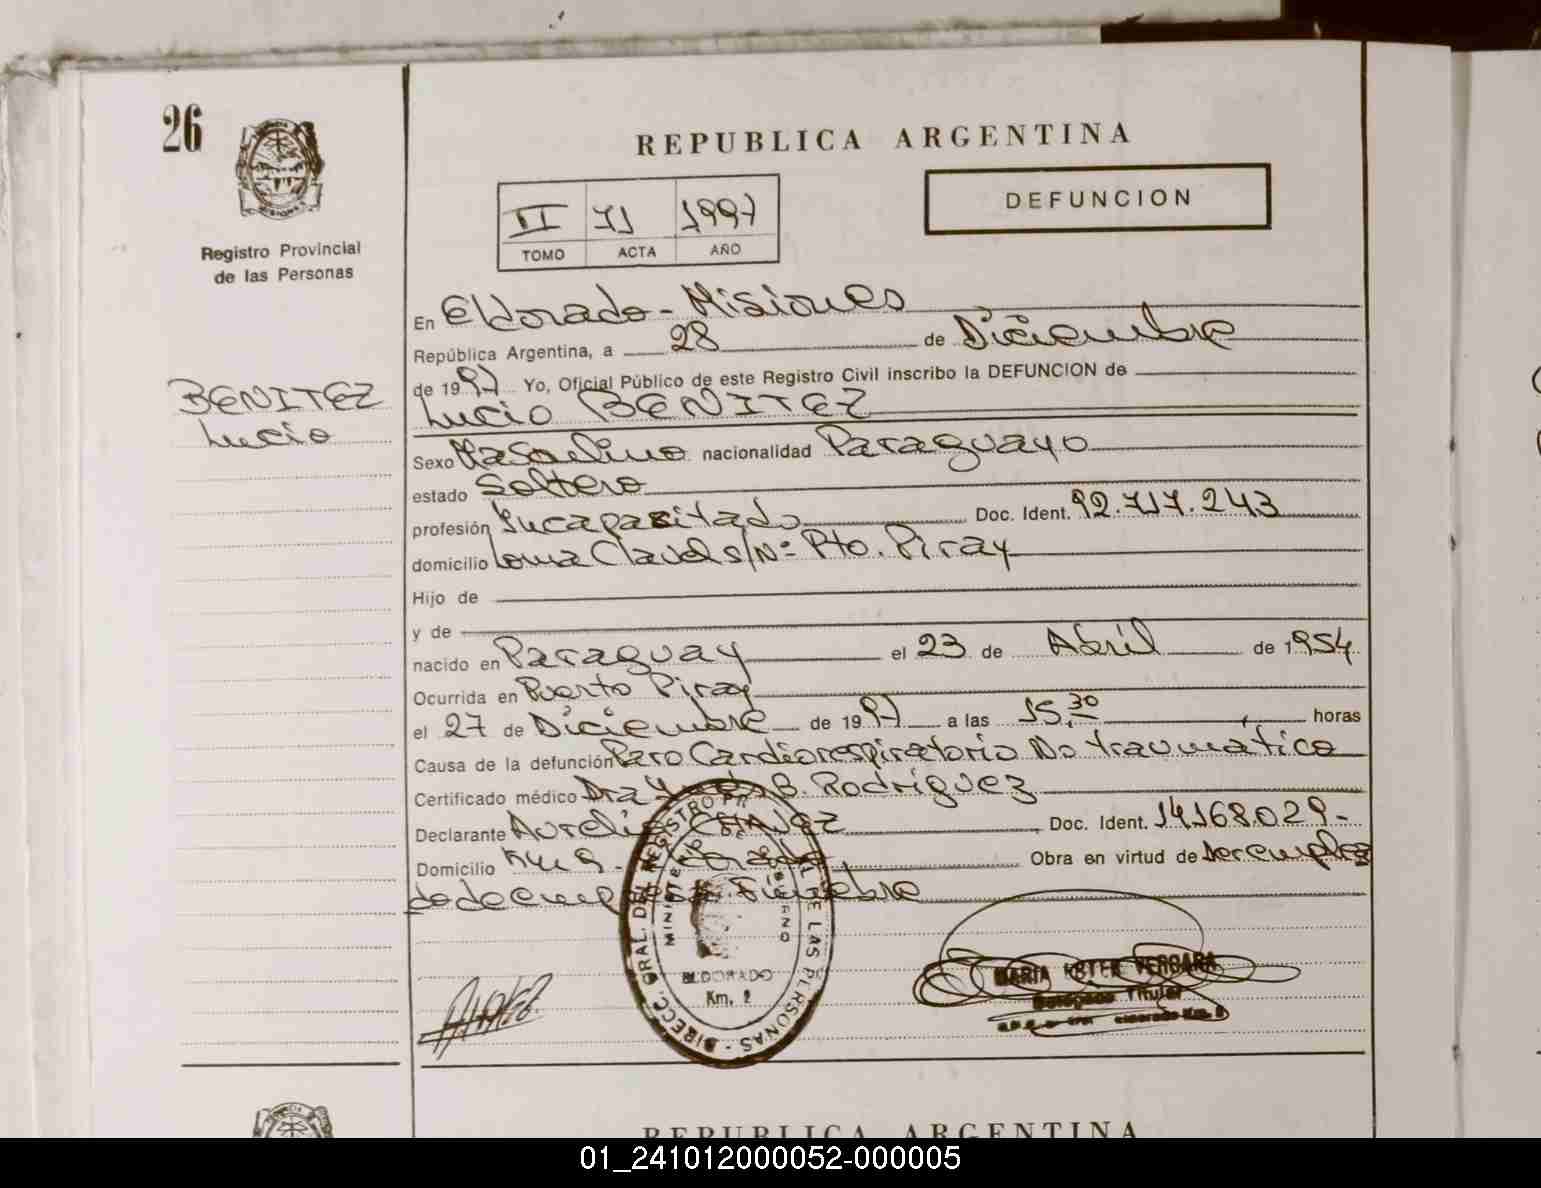 26
REPUBLICA ARGENTINA
DEFUNCION
II 71 1997
TOMO ACTA AÑO
Registro Provincial
de las Personas
En Eldorado - Misiones
República Argentina, a 28 de Diciembre
de 1997 Yo, Oficial Público de este Registro Civil inscribo la DEFUNCION de
BENITEZ
Lucio
Lucio BENITEZ
Sexo Masculino nacionalidad Paraguayo
estado Soltero
profesión Incapacitado Doc. Ident. 92.717.243
domicilio Loma Clavel s/Nº Pto. Piray
Hijo de
y de
nacido en Paraguay el 23 de Abril de 1954
Ocurrida en Puerto Piray
el 27 de Diciembre de 1997 a las 15,30 horas
Causa de la defunción Paro Cardiorespiratorio No traumatico
Certificado médico Dra B. Rodriguez
Declarante Doc. Ident. 14168029-
Domicilio Km 9 - Obra en virtud de ser emplea
do de Funebre
DIRECC. GRAL. DEL REGISTRO DE LAS PERSONAS
MINISTERIO GOBIERNO
ELDORADO
Km. 2
MARIA ESTER VERGARA
Titular
REPUBLICA ARGENTINA
01_241012000052-000005